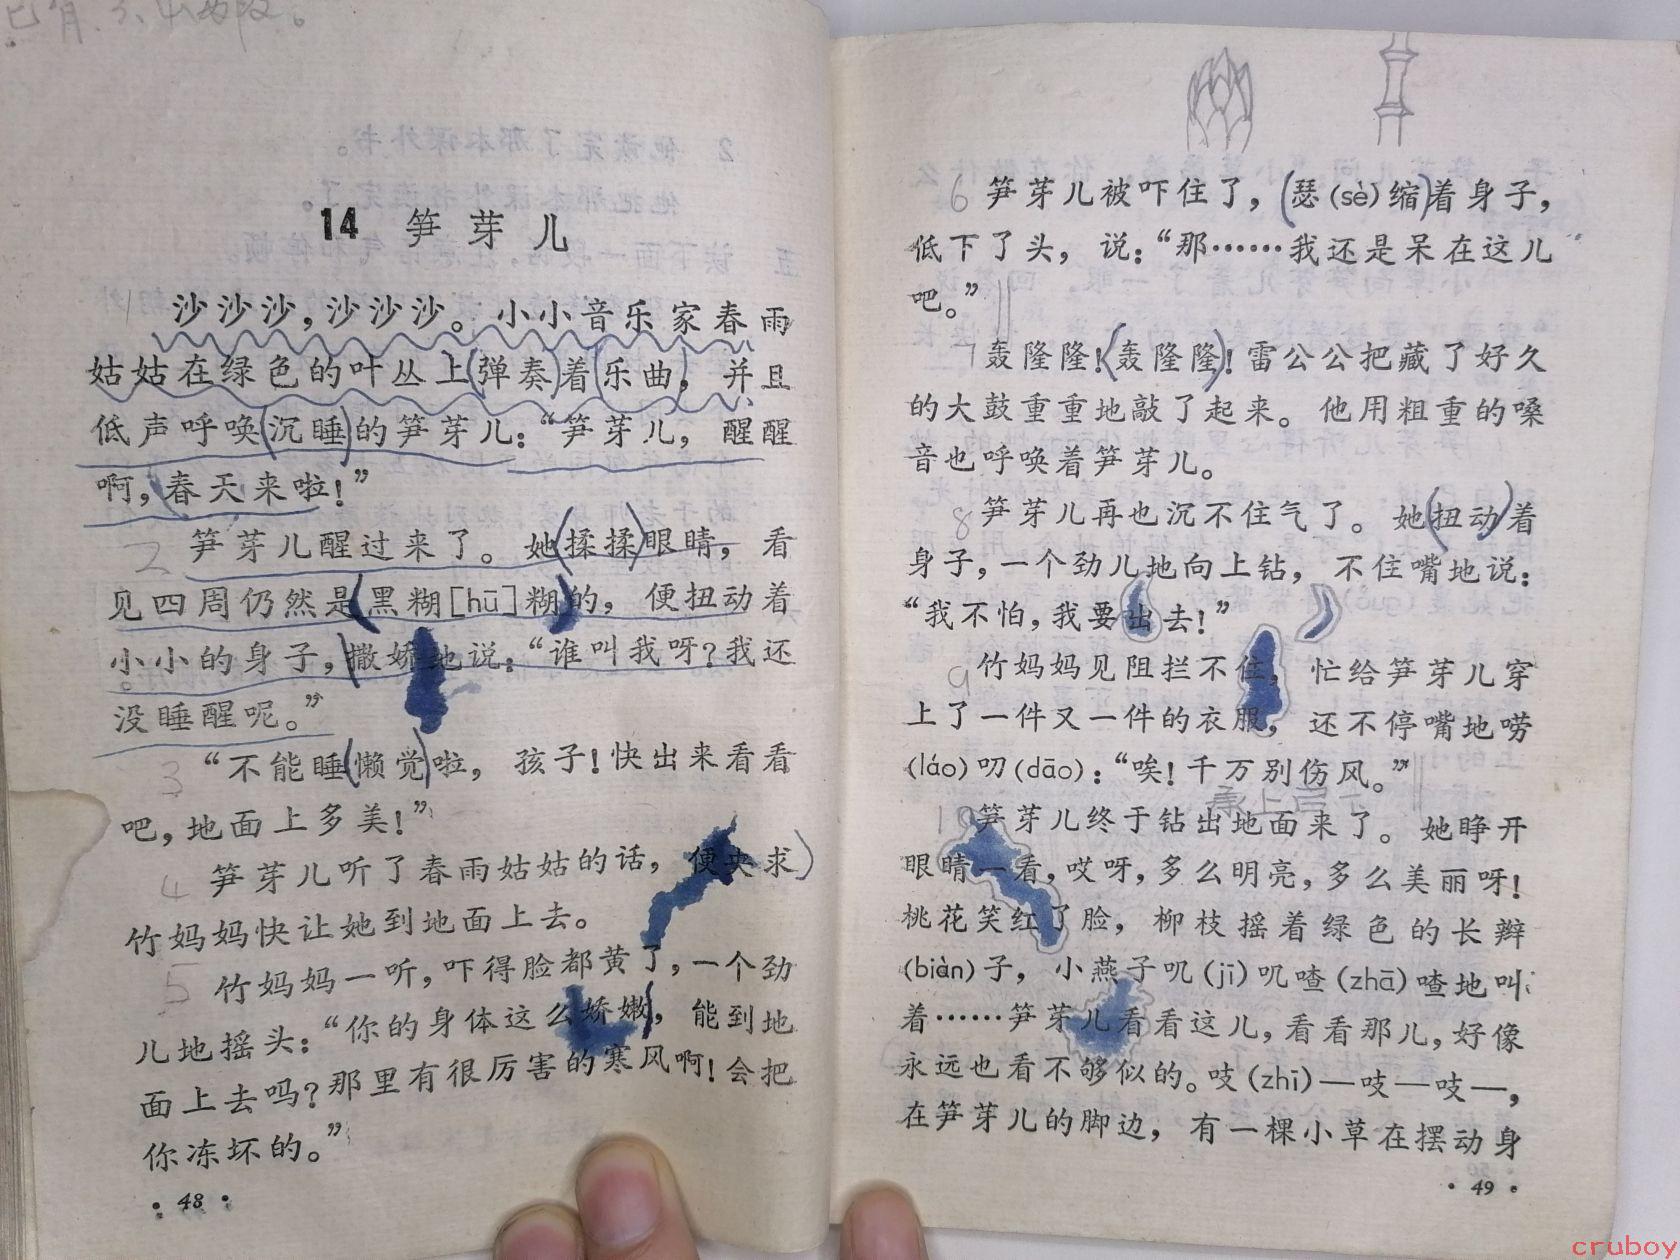 14 笋芽儿
沙沙沙，沙沙沙。小小音乐家春雨
姑姑在绿色的叶丛上弹奏着乐曲，并且
低声呼唤沉睡的笋芽儿：“笋芽儿，醒醒
啊，春天来啦！”
2 笋芽儿醒过来了。她揉揉眼睛，看
见四周仍然是黑糊[hū]糊的，便扭动着
小小的身子，撒娇地说：“谁叫我呀？我还
没睡醒呢。”
3 “不能睡懒觉啦，孩子！快出来看看
吧，地面上多美！”
4 笋芽儿听了春雨姑姑的话，便央求
竹妈妈快让她到地面上去。
5 竹妈妈一听，吓得脸都黄了，一个劲
儿地摇头：“你的身体这么娇嫩，能到地
面上去吗？那里有很厉害的寒风啊！会把
你冻坏的。”
·48·
6 笋芽儿被吓住了，瑟(sè)缩着身子，
低下了头，说：“那……我还是呆在这儿
吧。”
7 轰隆隆！轰隆隆！雷公公把藏了好久
的大鼓重重地敲了起来。他用粗重的嗓
音也呼唤着笋芽儿。
8 笋芽儿再也沉不住气了。她扭动着
身子，一个劲儿地向上钻，不住嘴地说：
“我不怕，我要出去！”
9 竹妈妈见阻拦不住，忙给笋芽儿穿
上了一件又一件的衣服，还不停嘴地唠
(láo)叨(dāo)：“唉！千万别伤风。”
承上启下
10 笋芽儿终于钻出地面来了。她睁开
眼睛一看，哎呀，多么明亮，多么美丽呀！
桃花笑红了脸，柳枝摇着绿色的长辫
(biàn)子，小燕子叽(jī)叽喳(zhā)喳地叫
着……笋芽儿看看这儿，看看那儿，好像
永远也看不够似的。吱(zhī)—吱—吱—，
在笋芽儿的脚边，有一棵小草在摆动身
·49·
cruboy